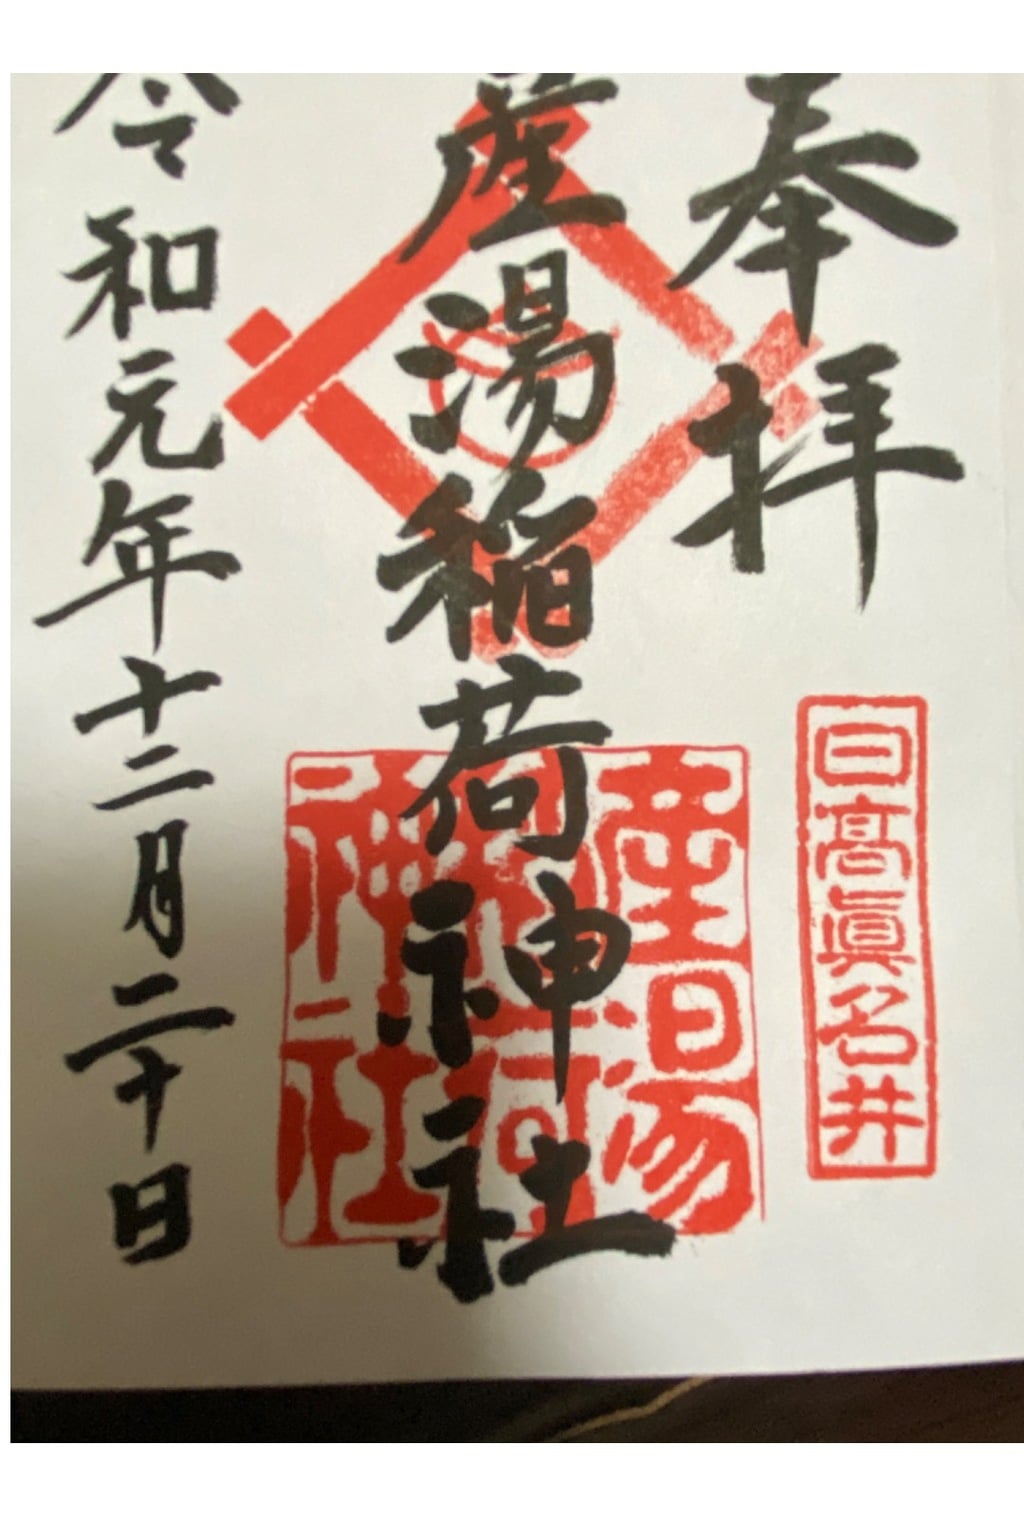 奉拝
日髙眞名井
産湯稲荷神社
産湯稲荷神社
令和元年十二月二十日